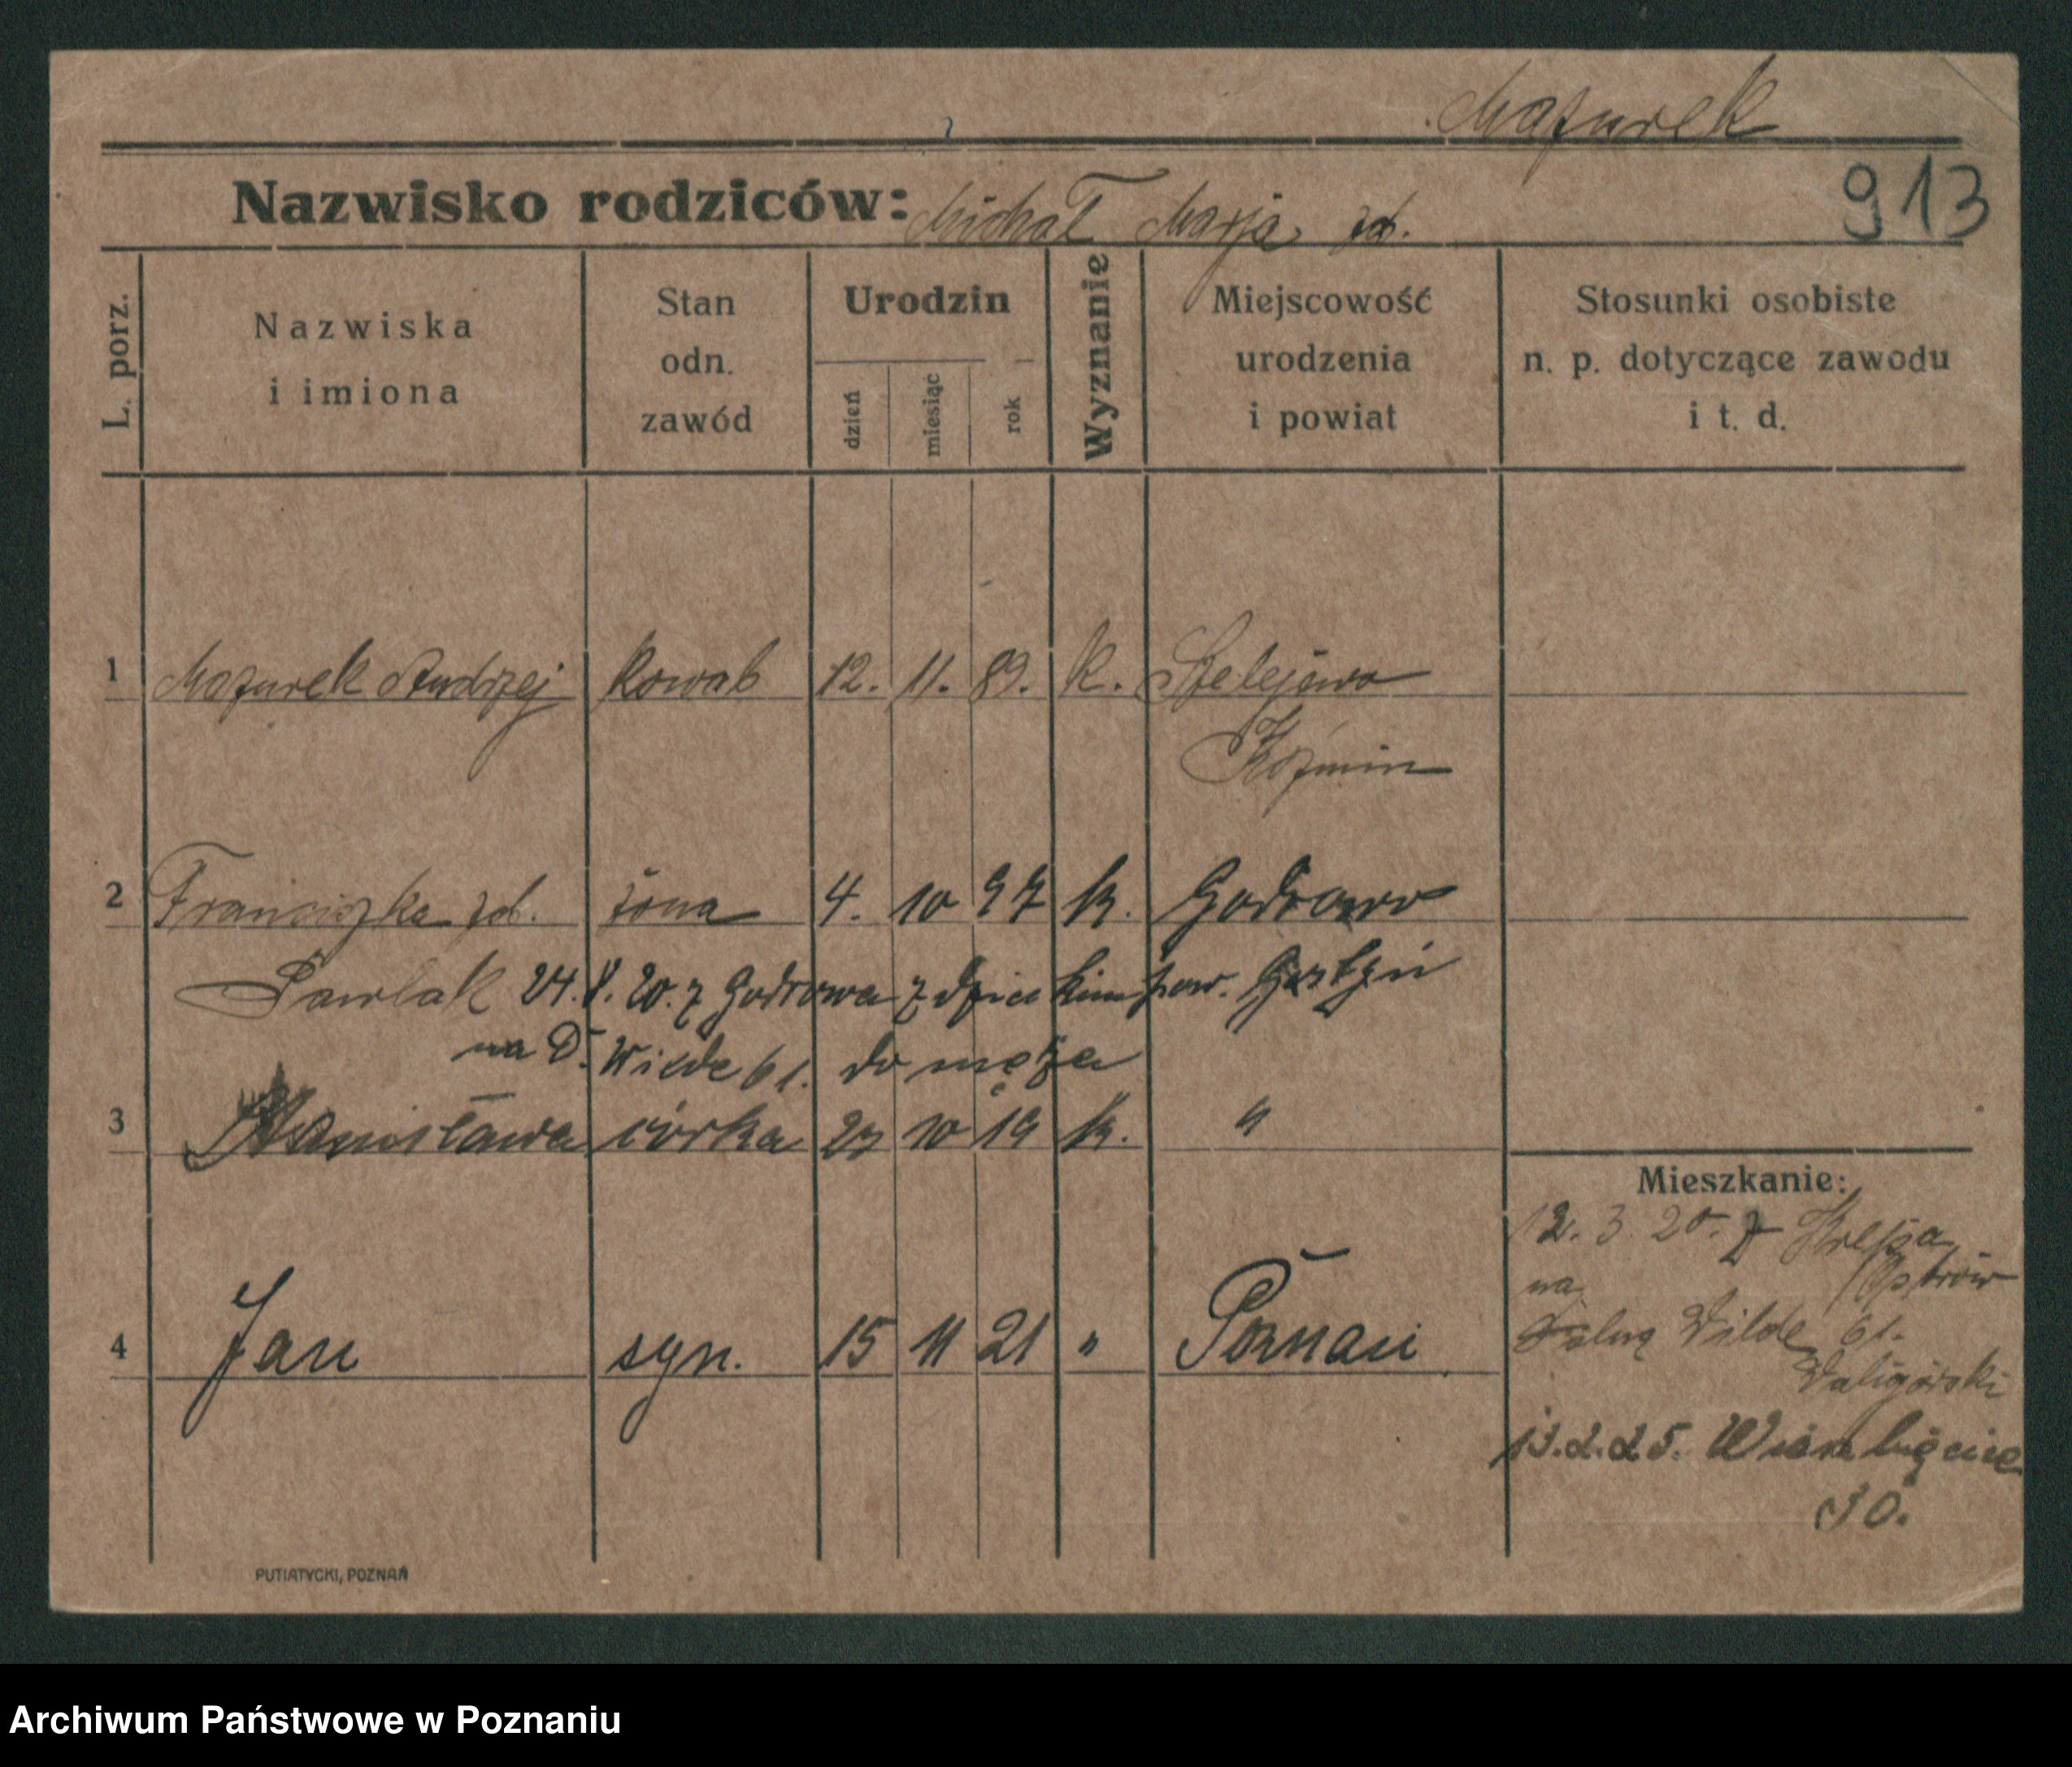 Mazurek
Nazwisko rodziców: Michał Marja zd.
913
L. porz.
Nazwiska
i imiona
Stan
odn.
zawód
Urodzin
dzień
miesiąc
rok
Wyznanie
Miejscowość
urodzenia
i powiat
Stosunki osobiste
n. p. dotyczące zawodu
i t. d.
1 Mazurek Andrzej kowal 12. 11. 89. k. Szelejewo
Koźmin
2 Franciszka zd. żona 4. 10 97 k. Godrowo
Pawlak 24. V. 20. z Godrowa z dzieckiem pow. Gostyń
na D. Wilde 61. do męża
3 Stanisława córka 23 10 19 k. "
4 Jan syn. 15 11 21 " Poznań
Mieszkanie:
12. 3. 20. z
na Ostrów
Dolną Wilde 61.
Waligórski
13.2.25. Wierzbięcice
30.
PUTIATYCKI, POZNAŃ
Archiwum Państwowe w Poznaniu